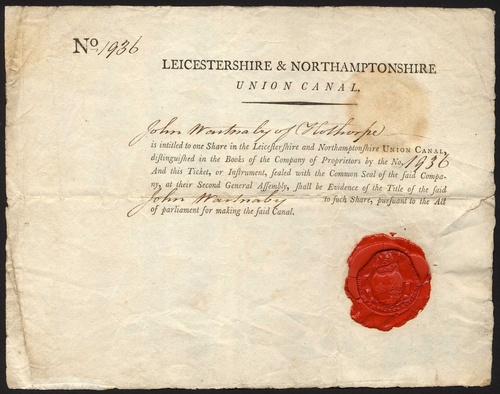 No. 1936
LEICESTERSHIRE & NORTHAMPTONSHIRE
UNION CANAL.
John Wartnaby of Hothorpe
is intitled to one Share in the Leicestershire and Northamptonshire UNION CANAL,
distinguished in the Books of the Company of Proprietors by the No. 1936
And this Ticket, or Instrument, sealed with the Common Seal of the said Compa-
ny, at their Second General Assembly, shall be Evidence of the Title of the said
John Wartnaby to such Share, pursuant to the Act
of parliament for making the said Canal.